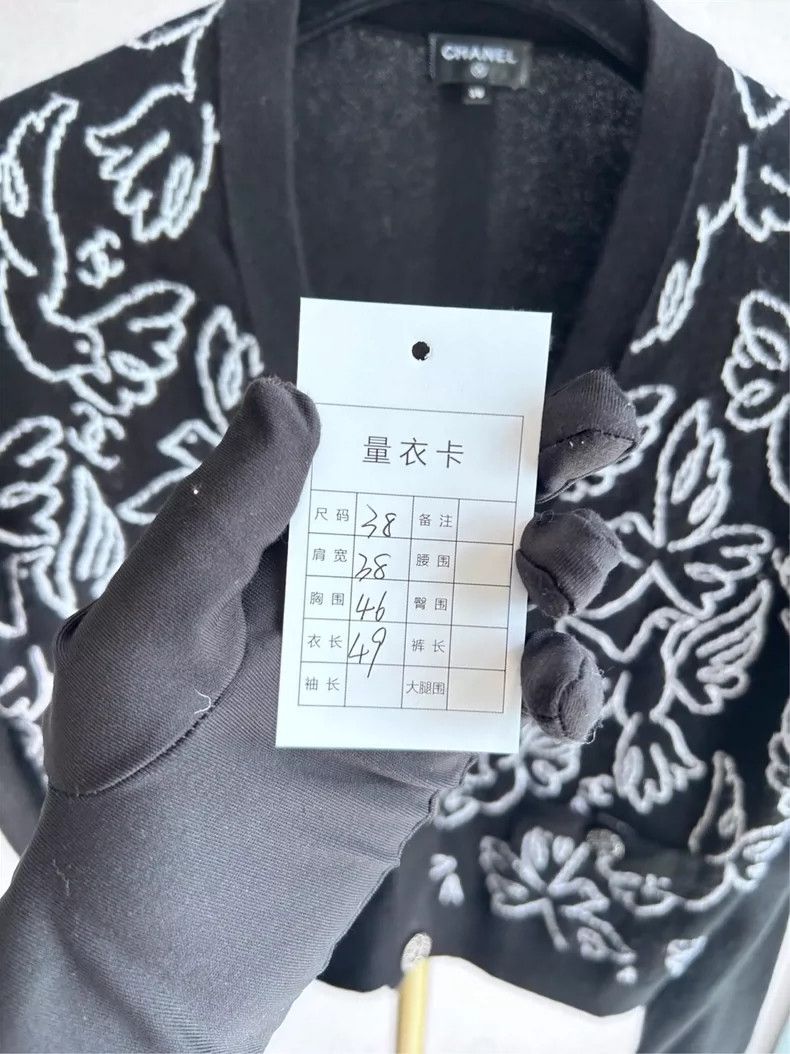 CHANEL
量衣卡
尺码 38 备注
肩宽 38 腰围
胸围 46 臀围
衣长 49 裤长
袖长 大腿围